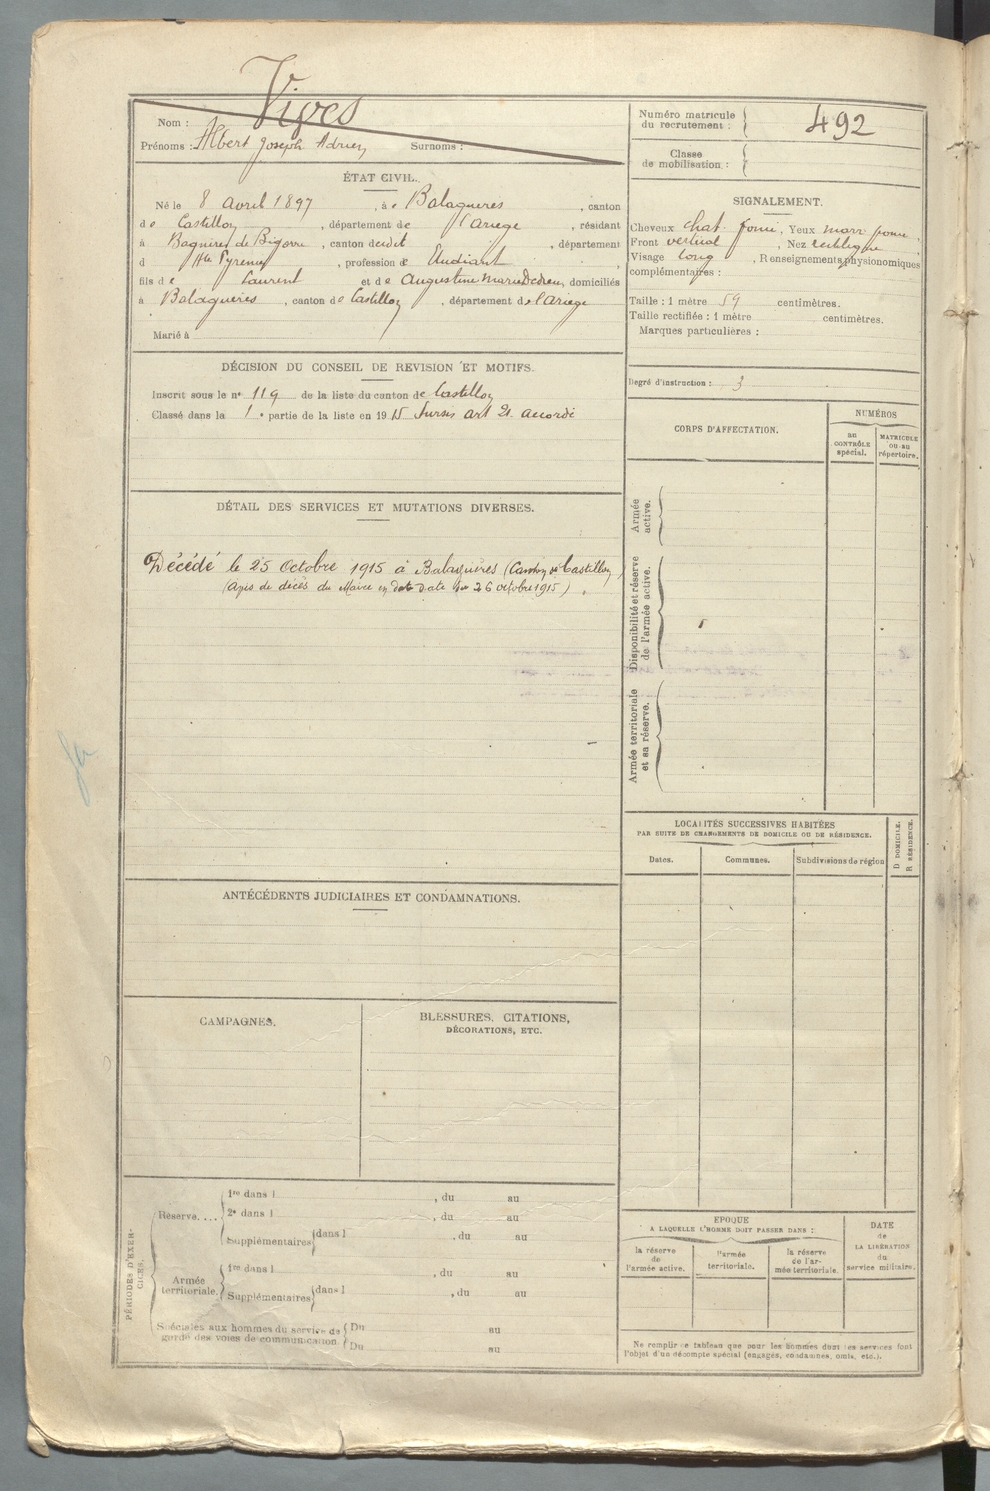 Vives
Nom :
Prénoms : Albert Joseph Adrien Surnoms :
Numéro matricule
du recrutement :
492
Classe
de mobilisation :
ÉTAT CIVIL.
Né le 8 avril 1897, à Balaguères, canton
de Castillon, département de l'Ariège, résidant
à Bagnères de Bigorre, canton dudit, département
d Htes Pyrénées, profession d Etudiant
fils de Laurent et de Augustine Marie, domiciliés
à Balaguères, canton de Castillon, département de l'Ariège
Marié à
SIGNALEMENT.
Cheveux chat. foncé, Yeux marr foncé.
Front vertical, Nez rectiligne
Visage long, Renseignements physionomiques
complémentaires :
Taille : 1 mètre 59 centimètres.
Taille rectifiée : 1 mètre centimètres.
Marques particulières :
Degré d'instruction : 3
DÉCISION DU CONSEIL DE REVISION ET MOTIFS.
Inscrit sous le n° 119 de la liste du canton de Castillon
Classé dans la 1e partie de la liste en 1915 Sursis art 21 accordé
CORPS D'AFFECTATION.
NUMÉROS
au
CONTRÔLE
spécial.
MATRICULE
ou au
répertoire.
Armée
active.
Disponibilité et réserve
de l'armée active.
Armée territoriale
et sa réserve.
DÉTAIL DES SERVICES ET MUTATIONS DIVERSES.
Décédé le 25 Octobre 1915 à Balaguères (Canton de Castillon)
(Avis de décès du Maire en date du 26 octobre 1915).
LOCALITÉS SUCCESSIVES HABITÉES
PAR SUITE DE CHANGEMENTS DE DOMICILE OU DE RÉSIDENCE.
Dates.
Communes.
Subdivisions de région
D DOMICILE.
R RÉSIDENCE.
ANTÉCÉDENTS JUDICIAIRES ET CONDAMNATIONS.
CAMPAGNES.
BLESSURES, CITATIONS,
DÉCORATIONS, ETC.
PÉRIODES D'EXER-
CICES.
Réserve....
1re dans l , du au
2e dans l , du au
Supplémentaires dans l , du au
Armée
territoriale.
1re dans l , du au
Supplémentaires dans l , du au
Spéciales aux hommes du service de
garde des voies de communication
Du au
Du au
EPOQUE
A LAQUELLE L'HOMME DOIT PASSER DANS :
la réserve
de
l'armée active.
l'armée
territoriale.
la réserve
de l'ar-
mée territoriale.
DATE
de
LA LIBÉRATION
du
service militaire.
Ne remplir ce tableau que pour les hommes dont les services font
l'objet d'un décompte spécial (engagés, condamnés, omis, etc.).